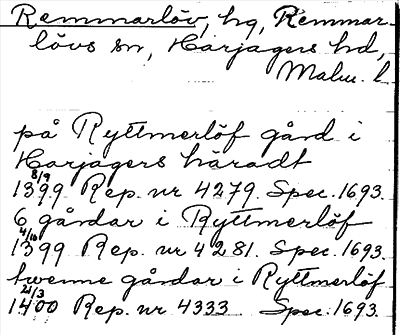 Remmarlöv, hg, Remmar-
lövs sn, Harjagers hd,
Malm. l
på Ryttmerlöf gård i
Harjagers häradt
8/9
1399 Rep. nr 4279. Spec. 1693.
6 gårdar i Ryttmerlöf
4/10
1399 Rep. nr 4281. Spec. 1693.
hwenne gårdar i Ryttmerlöf
21/3
1400 Rep. nr 4333 Spec. 1693.